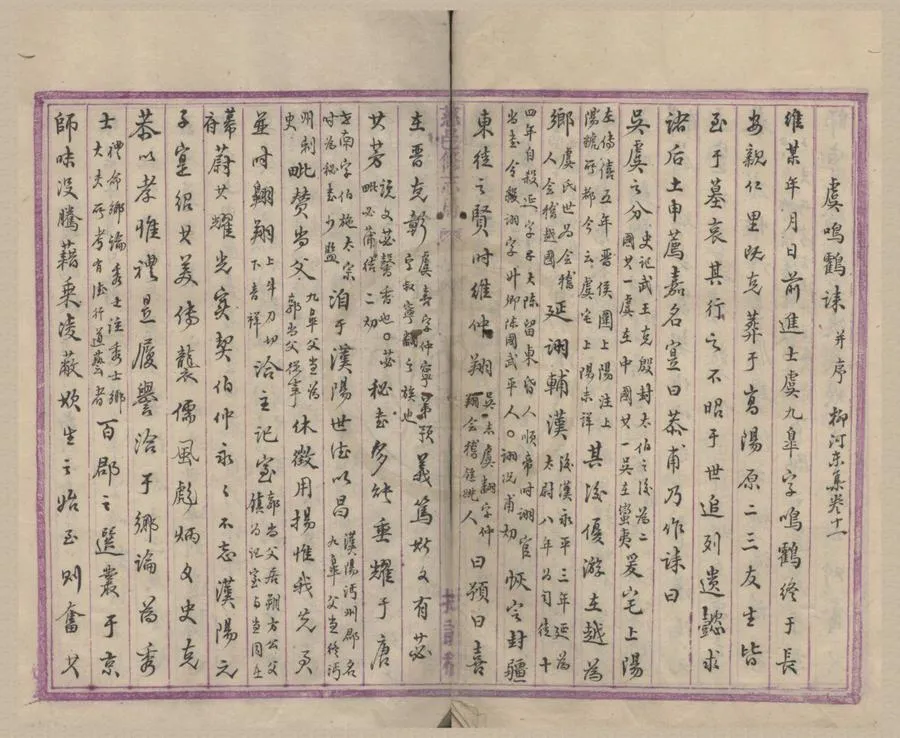 虞鳴鶴誄 并序 柳河東集卷十一
維某年月日前進士虞九皐字鳴鶴終于長
安親仁里既克葬于高陽原二三友生皆
至于墓哀其行之不昭于世追列遺懿求
諸后土申薦嘉名寔曰恭甫乃作誄曰
吳虞之分 史記武王克殷封太伯之後為二國其一虞在中國其一吳在蠻夷 爰宅上陽
左傳僖五年晉侯圍上陽注上陽虢所都今云虞宅上陽未詳 其後優游在越為
鄉 虞氏世為會稽人會稽越國 延詡輔漢 後漢永平三年延為太尉八年為司徒十
四年自殺延字子大陳留東昏人順帝時詡官尚書令詡字升卿陳國武平人○詡況甫切 恢定封疆
東徒之賢時維仲翔 吳志虞翻字仲翔會稽餘姚人 曰預曰喜
在晉克彰 虞喜字仲寧弟預字叔寧翻之族也 義篤斯文有苾
其芳 說文苾馨香也○苾毗必蒲結二切 秘書多能垂耀于唐
世南字伯施太宗時為秘書少監 洎于漢陽世德以昌 漢陽沔州郡名九皐父當終沔
州刺史 毗贊尚父 九皐父當為郭尚父從事 休徵用揚惟我先君
並時翺翔 上牛刀切下音祥 洽主記室 郭尚父居朔方公父鎮為記室與當同在
幕府 蔚其耀光寔契伯仲永〻不忘漢陽元
子寔紹其美傳襲儒風彪炳文史克
恭以孝惟禮是履譽洽于鄉論為秀
士 禮命鄉論秀士注秀士鄉大夫所考有德行道藝者 百郡之選叢于京
師昧沒騰藉乘淩蔽欺生之始至則奮其